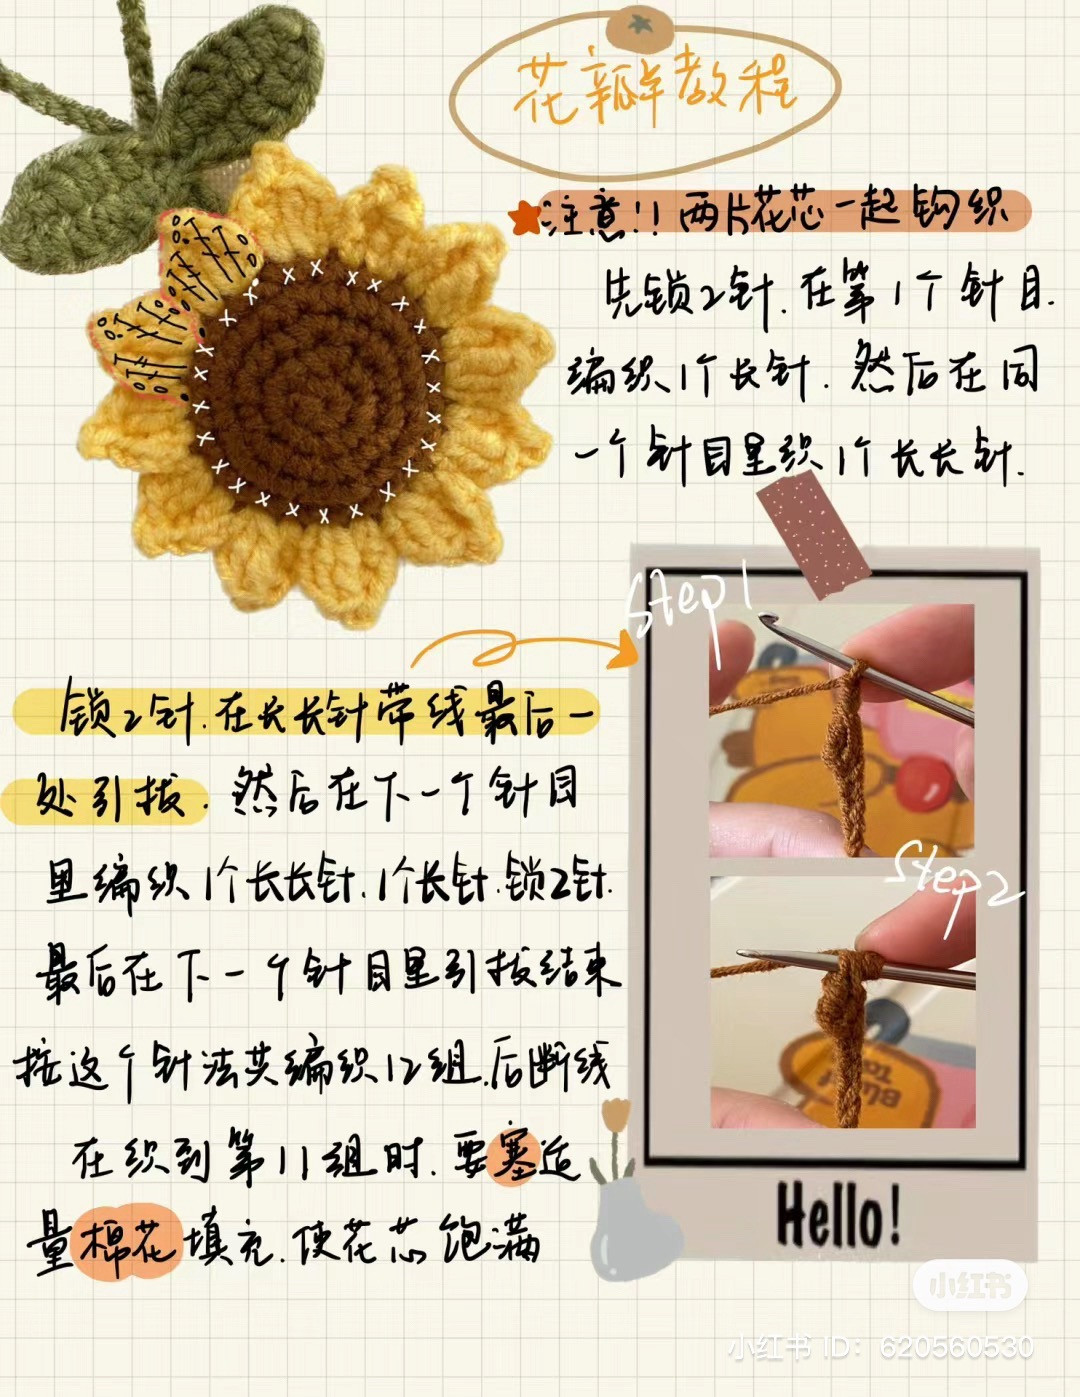 花瓣教程
注意!! 两片花芯一起钩织
先锁2针.在第1个针目.
编织1个长针.然后在同
一个针目里织1个长长针.
Step1
锁2针.在长长针带线最后一
处引拔.然后在下一个针目
里编织1个长长针.1个长针.锁2针.
最后在下一个针目里引拔结束
按这个针法共编织12组.后断线
在织到第11组时.要塞适
量棉花填充.使花芯饱满
Step2
Hello!
小红书
小红书 ID: 620560530